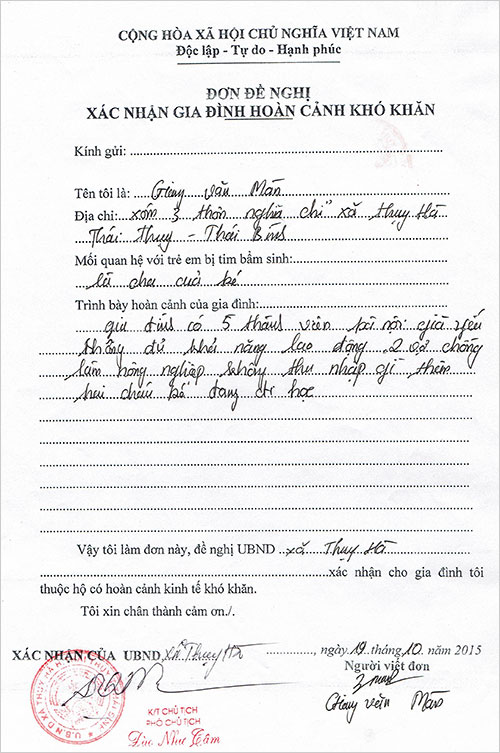 CỘNG HÒA XÃ HỘI CHỦ NGHĨA VIỆT NAM
Độc lập - Tự do - Hạnh phúc
ĐƠN ĐỀ NGHỊ
XÁC NHẬN GIA ĐÌNH HOÀN CẢNH KHÓ KHĂN
Kính gửi:
Tên tôi là: Giang Văn Mãn
Địa chỉ: xóm 3 thôn nghĩa chỉ xã Thụy Hà
Thái Thụy - Thái Bình
Mối quan hệ với trẻ em bị tim bẩm sinh:
là cha của bé
Trình bày hoàn cảnh của gia đình:
gia đình có 5 thành viên bà nội già yếu
không đủ khả năng lao động 2 vợ chồng
làm nông nghiệp không thu nhập gì thêm
hai cháu bé đang đi học
Vậy tôi làm đơn này, đề nghị UBND xã Thụy Hà
xác nhận cho gia đình tôi
thuộc hộ có hoàn cảnh kinh tế khó khăn.
Tôi xin chân thành cảm ơn./.
XÁC NHẬN CỦA UBND Xã Thụy Hà
, ngày 19 tháng 10 năm 2015
Người viết đơn
Giang Văn Mãn
K/T CHỦ TỊCH
PHÓ CHỦ TỊCH
Đào Như Cẩm